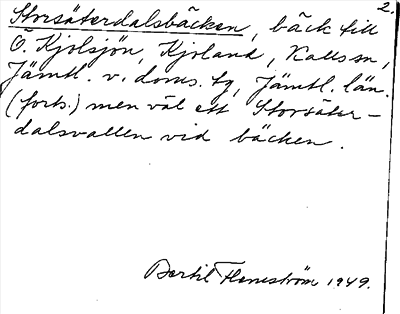 Storsäterdalsbäcken, bäck till 2.
Ö. Kjolsjön, Kjoland, Kalls sn,
Jämtl. v. doms. tg, Jämtl. län.
(forts.) men väl ett Storsäter-
dalsvallen vid bäcken.
Bertil Flemström 1949.